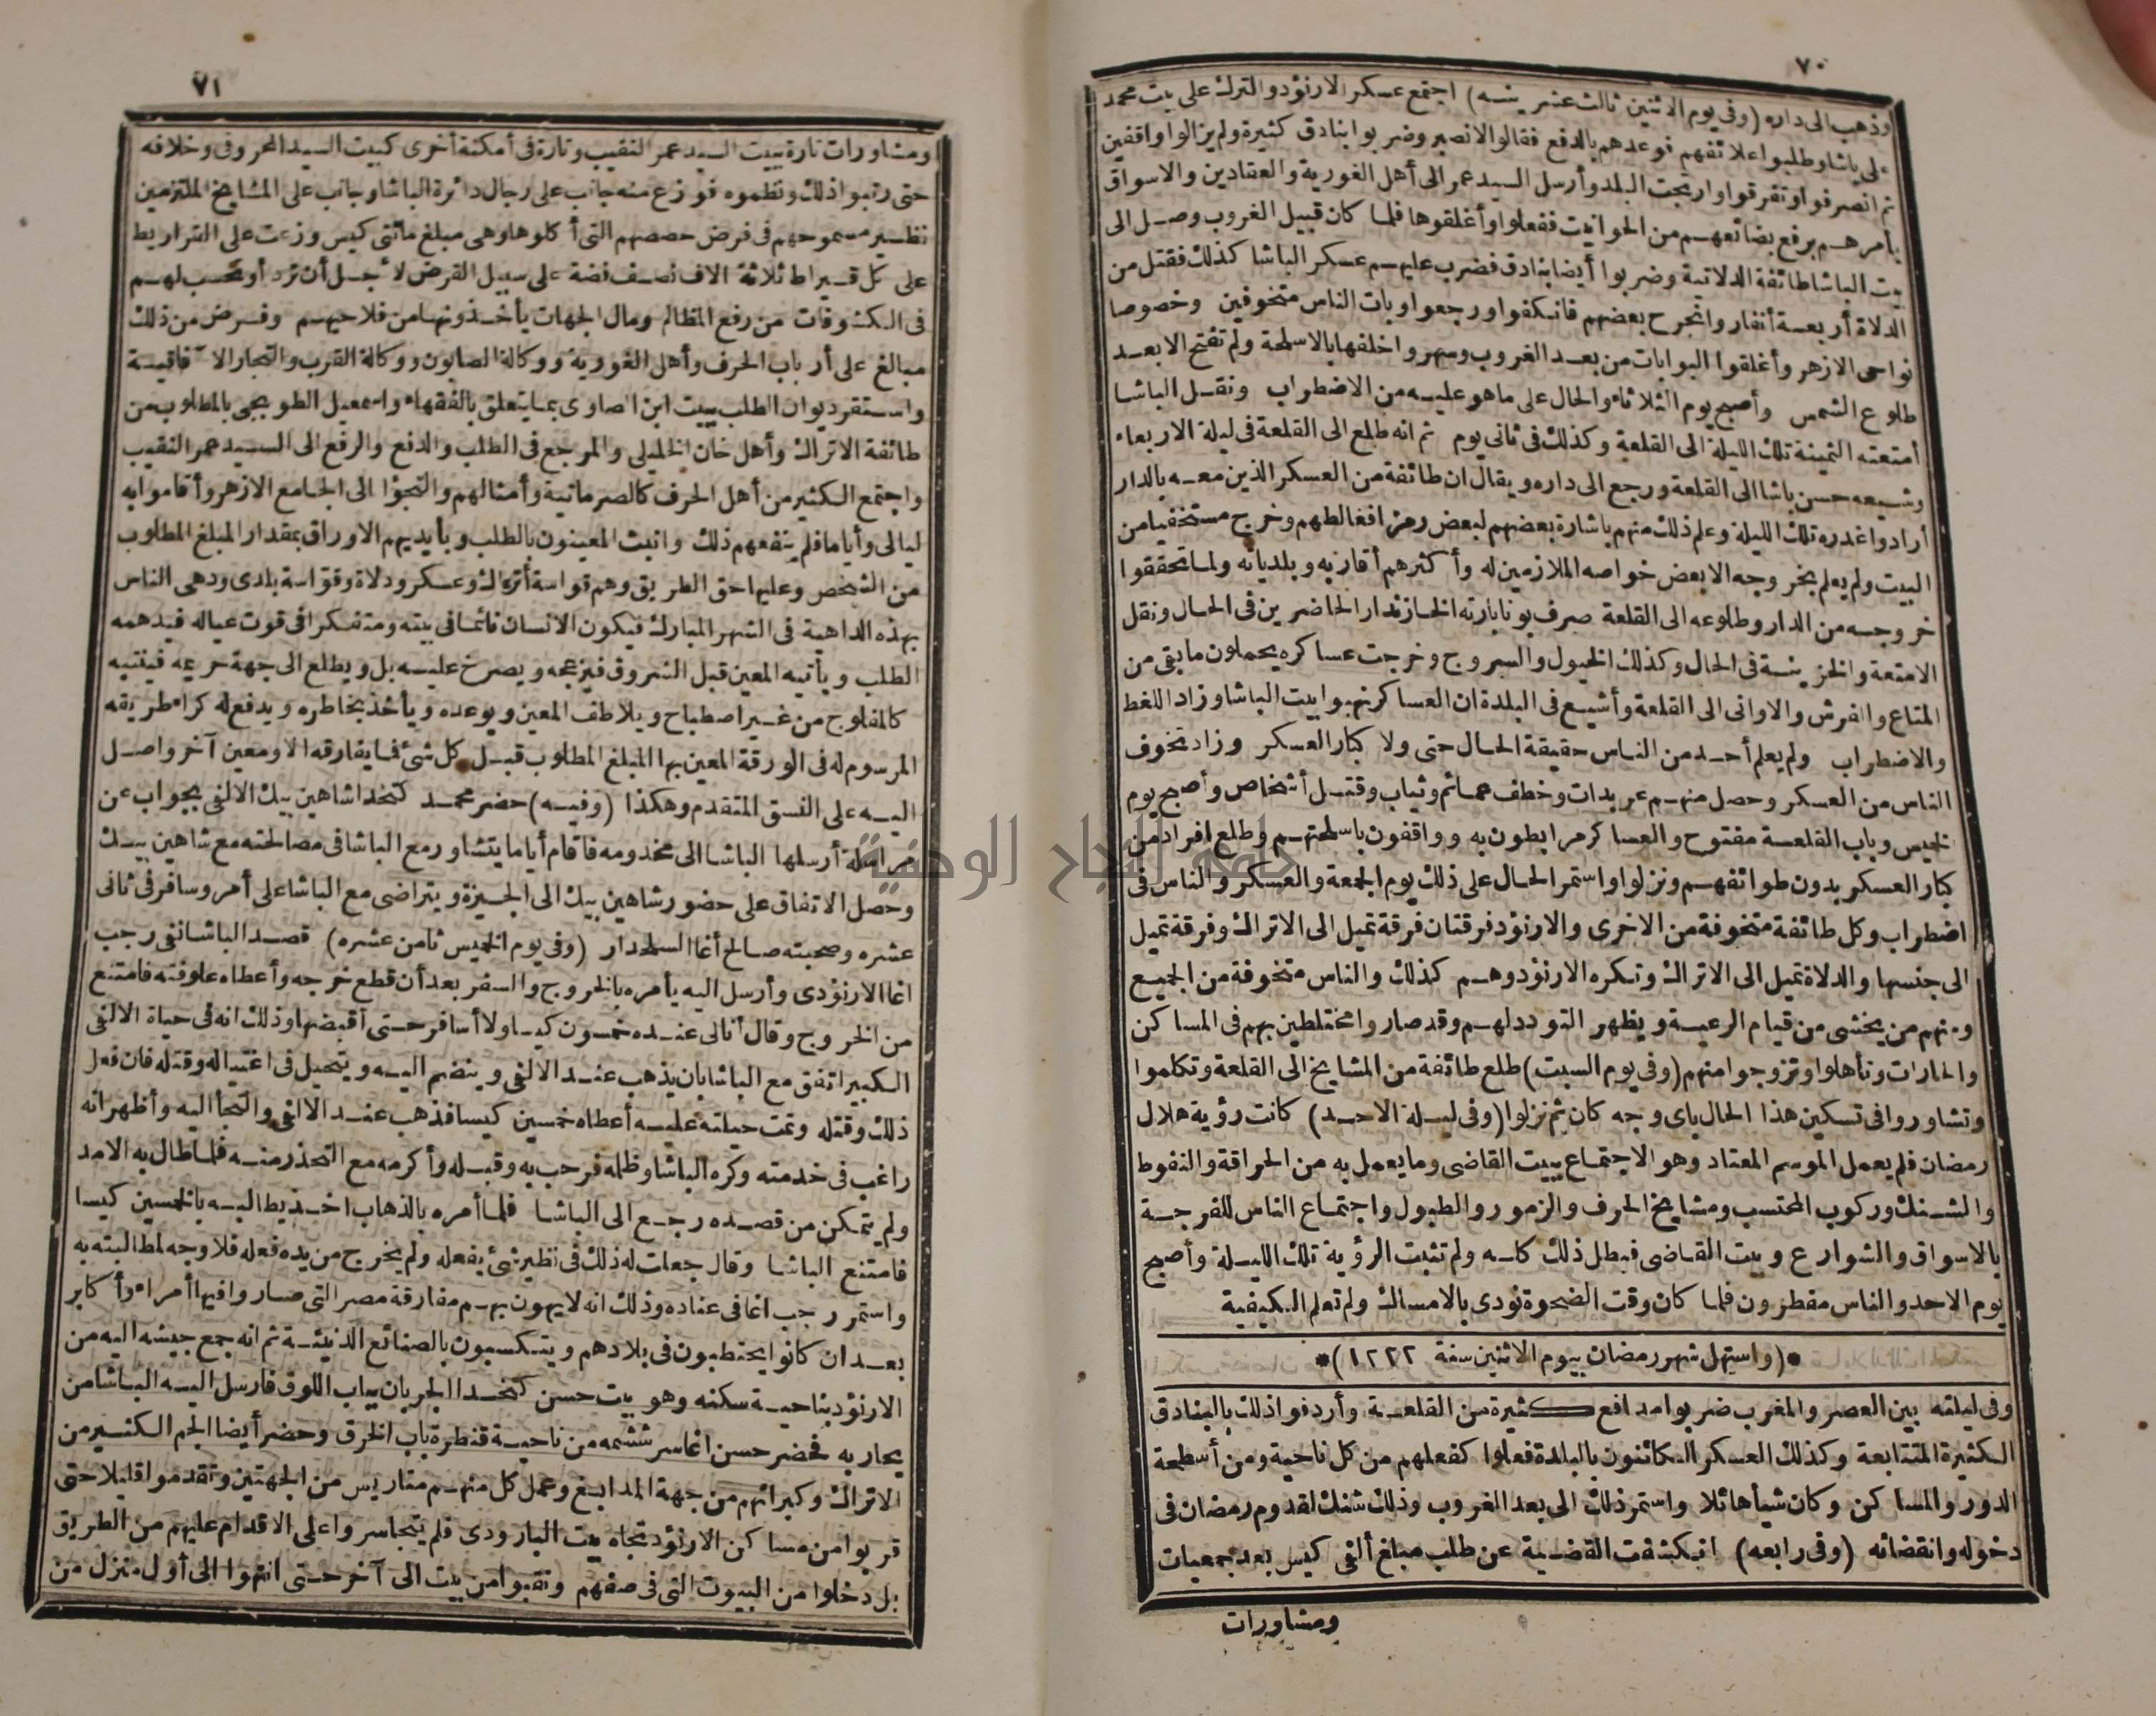 ٧٠
وذهب الى داره (وفى يوم الاثنين ثالث عشرينه) اجتمع عسكر الارنؤد والترك على بيت محمد
على باشا وطلبوا علائفهم فوعدهم بالدفع فقالوا لانصبر وضربوا بنادق كثيرة ولم يزالوا واقفين
ثم انصرفوا وتفرقوا وارتجت البلد وأرسل السيد عمر الى أهل الغورية والعقادين والاسواق
يأمرهم برفع بضائعهم من الحوانيت ففعلوا وأغلقوها فلما كان قبيل الغروب وصل الى
بيت الباشا طائفة الدلاتية وضربوا أيضا بنادق فضرب عليهم عسكر الباشا كذلك فقتل من
الدلاة أربعة أنفار وانجرح بعضهم فانكفوا ورجعوا وبات الناس متخوفين وخصوصا
نواحى الازهر وأغلقوا البوابات من بعد الغروب وسهروا خلفها بالاسلحة ولم تفتح الا بعد
طلوع الشمس وأصبح يوم الثلاثاء والحال على ما هو عليه من الاضطراب ونقل الباشا
أمتعته الثمينة تلك الليلة الى القلعة وكذلك فى ثانى يوم ثم انه طلع الى القلعة فى ليلة الاربعاء
وشيعه حسن باشا الى القلعة ورجع الى داره ويقال ان طائفة من العسكر الذين معه بالدار
أرادوا غدره تلك الليلة وعلم ذلك منهم باشارة بعضهم لبعض رمزا فغالطهم وخرج مستخفيا من
البيت ولم يعلم بخروجه الا بعض خواصه الملازمين له وأكثرهم أقاربه وبلدياته ولما تحققوا
خروجه من الدار وطلوعه الى القلعة صرف بونابارته الخازندار الحاضرين فى الحال ونقل
الامتعة والخزينة فى الحال وكذلك الخيول والسروج وخرجت عساكره يحملون ما بقى من
المتاع والفرش والاوانى الى القلعة وأشيع فى البلدة ان العساكر نهبوا بيت الباشا وزاد اللغط
والاضطراب ولم يعلم أحد من الناس حقيقة الحال حتى ولا كبار العسكر وزاد تخوف
الناس من العسكر وحصل منهم عربدات وخطف عمائم وثياب وقتل أشخاص وأصبح يوم
الخيس وباب القلعة مفتوح والعساكر مرابطون به وواقفون باسلحتهم وطلع افراد من
كبار العسكر بدون طوائفهم ونزلوا واستمر الحال على ذلك يوم الجمعة والعسكر والناس فى
اضطراب وكل طائفة متخوفة من الاخرى والارنؤد فرقتان فرقة تميل الى الاتراك وفرقة تميل
الى جنسها والدلاة تميل الى الاتراك وتكره الارنؤد وهم كذلك والناس متخوفة من الجميع
ومنهم من يخشى من قيام الرعية ويظهر التودد لهم وقد صاروا مختلطين بهم فى المساكن
والحارات وتأهلوا وتزوجوا منهم (وفى يوم السبت) طلع طائفة من المشايخ الى القلعة وتكلموا
وتشاوروا فى تسكين هذا الحال باى وجه كان ثم نزلوا (وفى ليلة الاحد) كانت رؤية هلال
رمضان فلم يعمل الموسم المعتاد وهو الاجتماع ببيت القاضى وما يعمل به من الحراقة والنفوط
والشنك وركوب المحتسب ومشايخ الحرف والزمور والطبول واجتماع الناس للفرجة
بالاسواق والشوارع وبيت القاضى فبطل ذلك كله ولم تثبت الرؤية تلك الليلة وأصبح
يوم الاحد والناس مفطرون فلما كان وقت الضحوة نودى بالامساك ولم تعلم الكيفية
*(واستهل شهر رمضان بيوم الاثنين سنة ١٢٢٢)*
وفى ليلته بين العصر والمغرب ضربوا مدافع كثيرة من القلعة وأردفوا ذلك بالبنادق
الكثيرة المتتابعة وكذلك العسكر الكائنون بالبلدة فعلوا كفعلهم من كل ناحية ومن أسطحة
الدور والمساكن وكان شيأ هائلا واستمر ذلك الى بعد الغروب وذلك شنك لقدوم رمضان فى
دخوله وانقضائه (وفى رابعه) انكشفت القضية عن طلب مبلغ ألفى كيس بعد جمعيات
ومشاورات
٧١
ومشاورات تارة ببيت السيد عمر النقيب وتارة فى أمكنة أخرى كبيت السيد المحروقى وخلافه
حتى رتبوا ذلك ونظموه فوزع منه جانب على رجال دائرة الباشا وجانب على المشايخ الملتزمين
نظير مسموحهم فى فرض حصصهم التى أكلوها وهى مبلغ مائتى كيس وزعت على القراريط
على كل قيراط ثلاثة الاف نصف فضة على سبيل القرض لاجل أن ترد أو تحسب لهم
فى الكشوفات من رفع المظالم ومال الجهات يأخذونها من فلاحيهم وفرض من ذلك
مبالغ على أرباب الحرف وأهل الغورية ووكالة الصابون ووكالة القرب والتجار الآفاقية
واستقر ديوان الطلب ببيت ابن الصاوى بما يتعلق بالفقهاء واسمعيل الطوبجى بالمطلوب من
طائفة الاتراك وأهل خان الخليلى والمرجع فى الطلب والدفع والرفع الى السيد عمر النقيب
واجتمع الكثير من أهل الحرف كالصرماتية وأمثالهم والتجؤا الى الجامع الازهر وأقاموا به
ليالى وأياما فلم ينفعهم ذلك وانبث المعينون بالطلب وبأيديهم الاوراق بمقدار المبلغ المطلوب
من الشخص وعليها حق الطريق وهم قواسة أتراك وعسكر ودلاة وقواسة بلدى ودهى الناس
بهذه الداهية فى الشهر المبارك فيكون الانسان نائما فى بيته ومتفكرا فى قوت عياله فيدهمه
الطلب ويأتيه المعين قبل الشروق فيزعجه ويصرخ عليه بل ويطلع الى جهة حريمه فينتبه
كالمفلوج من غير اصطباح ويلاطف المعين ويوعده ويأخذ بخاطره ويدفع له كراء طريقه
المرسوم له فى الورقة المعين بها المبلغ المطلوب قبل كل شئ فما يفارقه الا ومعين آخر واصل
اليه على النسق المتقدم وهكذا (وفيه) حضر محمد كتخدا شاهين بيك الالفى بجواب عن
مراسلة أرسلها الباشا الى مخدومه فاقام أياما يتشاور مع الباشا فى مصالحته مع شاهين بيك
وحصل الاتفاق على حضور شاهين بيك الى الجيزة ويتراضى مع الباشا على أمر وسافر فى ثانى
عشره وصحبته صالح أغا السلحدار (وفى يوم الخميس ثامن عشره) قصد الباشا نفى رجب
اغا الارنؤدى وأرسل اليه يأمره بالخروج والسفر بعد أن قطع خرجه وأعطاه علوفته فامتنع
من الخروج وقال أنا لى عنده خمسون كيسا ولا أسافر حتى أقبضها وذلك انه فى حياة الالفى
الكبير اتفق مع الباشا بان يذهب عند الالفى وينضم اليه ويتحيل فى اغتياله وقتله فان فعل
ذلك وقتله وتمت حيلته عليه أعطاه خمسين كيسا فذهب عند الالفى والتجأ اليه وأظهر انه
راغب فى خدمته وكره الباشا وظلمه فرحب به وقبله وأكرمه مع التحذر منه فلما طال به الامد
ولم يتمكن من قصده رجع الى الباشا فلما أمره بالذهاب اخذ يطالبه بالخمسين كيسا
فامتنع الباشا وقال جعلت له ذلك فى نظير شئ يفعله ولم يخرج من يده فعله فلا وجه لمطالبته به
واستمر رجب اغا فى عناده وذلك انه لا يهون بهم مفارقة مصر التى صاروا فيها أمراء وأكابر
بعد ان كانوا يحتطبون فى بلادهم ويتكسبون بالصنائع الدنيئة ثم انه جمع جيشه اليه من
الارنؤد بناحية سكنه وهو بيت حسن كتخدا الجربان بباب اللوق فارسل اليه الباشا من
يحاربه فحضر حسن اغا سرششمه من ناحية قنطرة باب الخرق وحضر أيضا الجم الكثير من
الاتراك وكبرائهم من جهة المدابغ وعمل كل منهم متاريس من الجهتين وتقدموا قليلا حتى
قربوا من مساكن الارنؤد تجاه بيت البارودى فلم يتجاسروا على الاقدام عليهم من الطريق
بل دخلوا من البيوت التى فى صفهم ونقبوا من بيت الى آخر حتى انتهوا الى أول منزل من
جامعة النجاح الوطنية